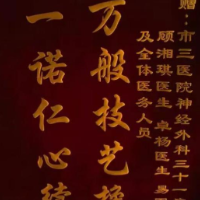 赠:市三医院神经外科三十一
顾湘琪医生 卓杨医生
及全体医务人员
万般技艺
一诺仁心续